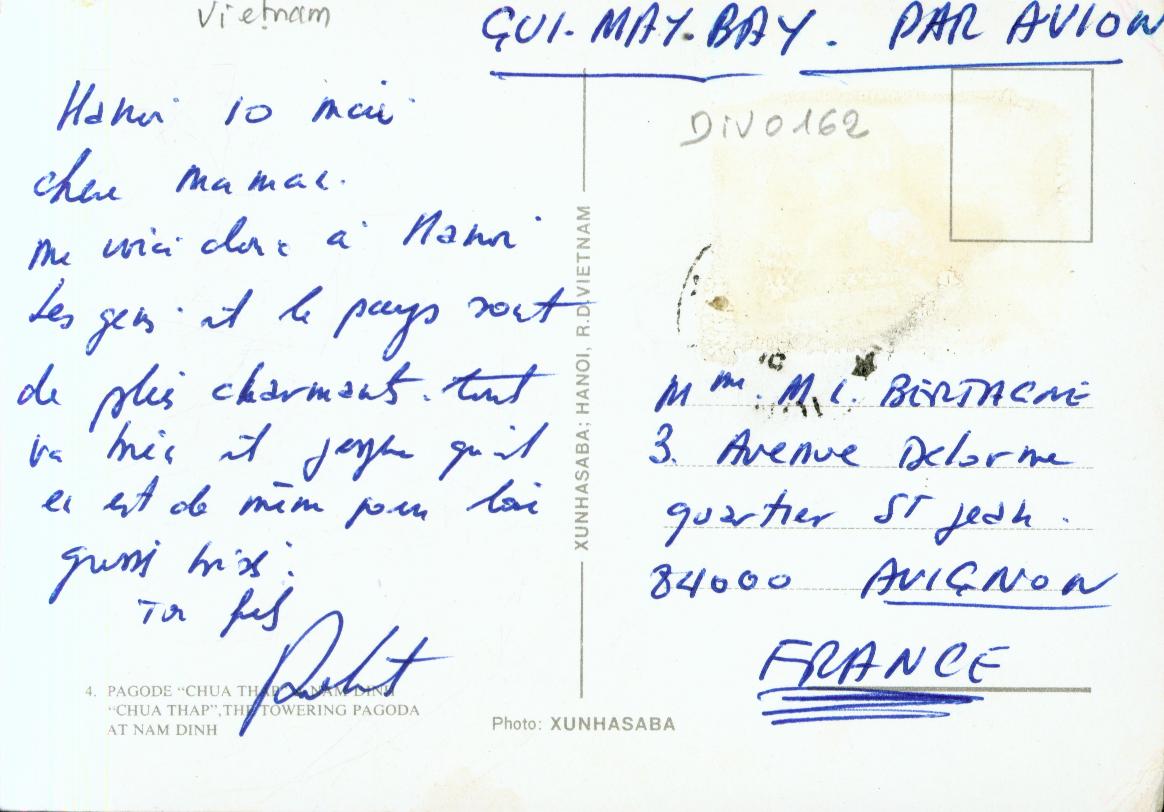 Vietnam
GUI. MAY. BAY. PAR AVION
DIV0162
Hanoi 10 mai
chere maman.
me voici donc à Hanoi
Les gens et le pays sont
de plus charmants. tout
va bien et j'espère qu'il
en est de même pour toi
gross bises.
Ton fils
Robert
4. PAGODE “CHUA THAP” À NAM DINH
“CHUA THAP”, THE TOWERING PAGODA
AT NAM DINH
XUNHASABA; HANOI, R.D.VIETNAM
Photo: XUNHASABA
Mme. M. L. BERTAGNE
3. Avenue Delorme
quartier St jean.
84000 AVIGNON
FRANCE